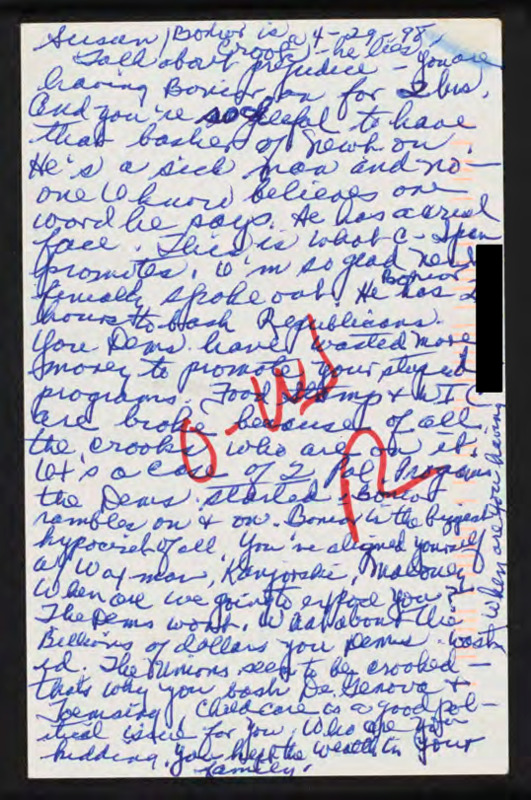 Susan, Bonior is a 4-29-98
crook - he lies
Talk about prejudice - you are
having Bonior on for 2 hrs.
and you're so gleeful to have
that basher of Newt on.
He's a sick man and no-
one I know believes one
word he says. He has a cruel
face. This is what C-Span
promotes. I'm so glad Newt
finally spoke out. He has 2
Bonior
hours to bash Republicans.
You Dems have wasted more
money to promote your stupid
programs. Food Stamp & WIC
are broke because of all
the crooks who are on it.
It's a case of 2 Pol. Programs
the Dems. started. Bonior
rambles on & on. Bonior is the biggest
hypocrit of all. You've aligned yourself
w/ Waxman, Kanjorski, Maloney
When are we going to expose you?
The Dems won't. W about the
Billions of dollars you Dems. wast-
ed. The Unions seem to be crooked -
thats why you bash De Genova &
Toensing. Child care is a good pol-
itical issue for you. Who are you
kidding. You kept the wealth in your
family.
when are you having
O-W
R